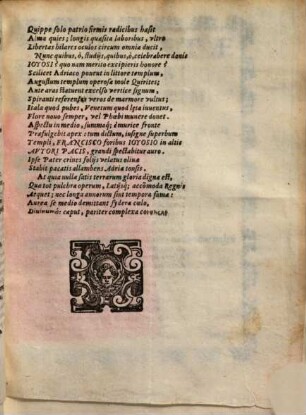 Quippe solo patrio firmis radicibus hæsit
Alma quies; longis quæsita laboribus, vltro
Libertas hilares oculos circum omnia ducit,
Nunc quibus, ô, studijs, quibus, ô, celebrabere donis
IOYOSI? quo nam merito excipieris honore?
Scilicet Adriaco ponent in littore templum,
Augustum templum operosa mole Quirites;
Ante aras statuent excelso vertice signum,
Spiranti referens veros de marmore vultus;
Itala quod pubes, Venetum quod læta iuuentus,
Flore nouo semper, vel Phæbi munere donet.
Aspectu in medio, summaq; è murice fronte
Præfulgebit apex tum dictum, insigne superbum
Templi, FRANCISCO foribus IOYOSIO in altis
AVTORI PACIS, grandi spectabitur auro.
Ipse Pater crines folijs velatus oliuæ
Stabis pacati allambens Adria tonsis.
At quia nulla satis terrarum gloria digna est,
Quæ tot pulchra operum, Latijsq; accōmoda Regnis
Æquet; nec longa annorum sint tempora fama:
Aurea se medio demittant sydera cœlo,
Diuinumq; caput, pariter complexa